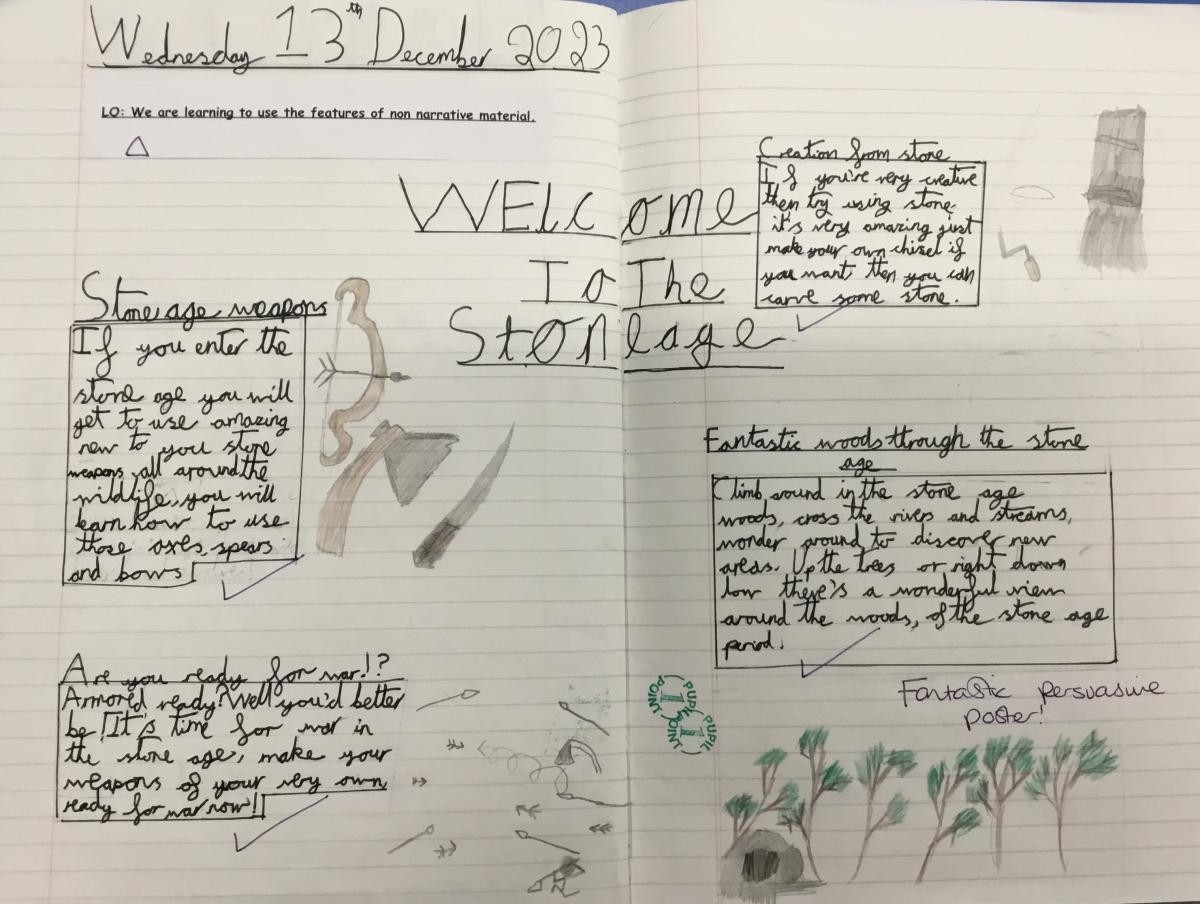 Wednesday 13th December 2023
LO: We are learning to use the features of non narrative material.
WELcome
To The
Stoneage
Stone age weapons
If you enter the
stone age you will
get to use amazing
new to you stone
weapons, all around the
wildlife, you will
learn how to use
those axes, spears
and bows
Are you ready for war!?
Armored ready? Well you'd better
be! It's time for war in
the stone age, make your
weapons of your very own,
ready for war now!
Creation from stone
If you're very creative
then try using stone
it's very amazing just
make your own chisel if
you want then you can
carve some stone.
Fantastic woods through the stone
age
Climb around in the stone age
woods, cross the rivers and streams,
wonder around to discover new
areas. Up the trees or right down
low there's a wonderful view
around the woods, of the stone age
period.
Fantastic persuasive
poster!
PUPIL POINT
1
PUPIL POINT
1